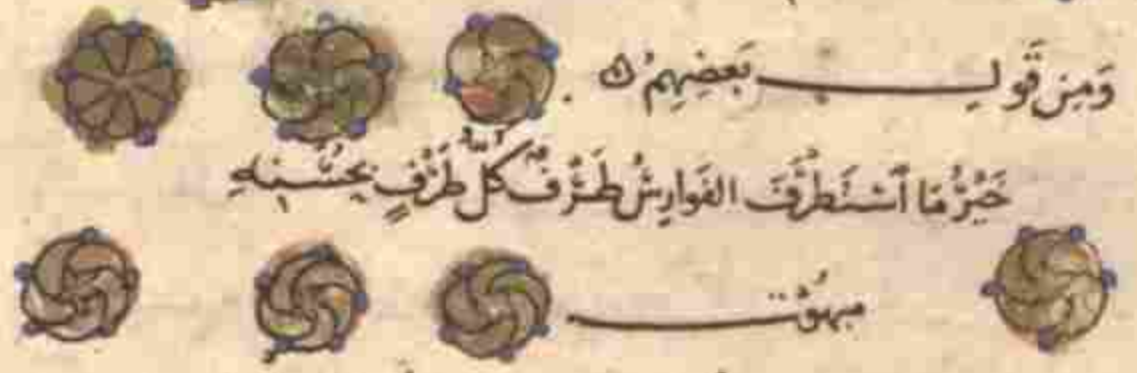 وَمِن قَولِ بَعضِهِم
خَيرُ مَا ٱسْتَطرَفَ الفَوارِسُ طَرْفٌ كُلُّ طَرْفٍ بِحُسْنِهِ
مبهُوْت